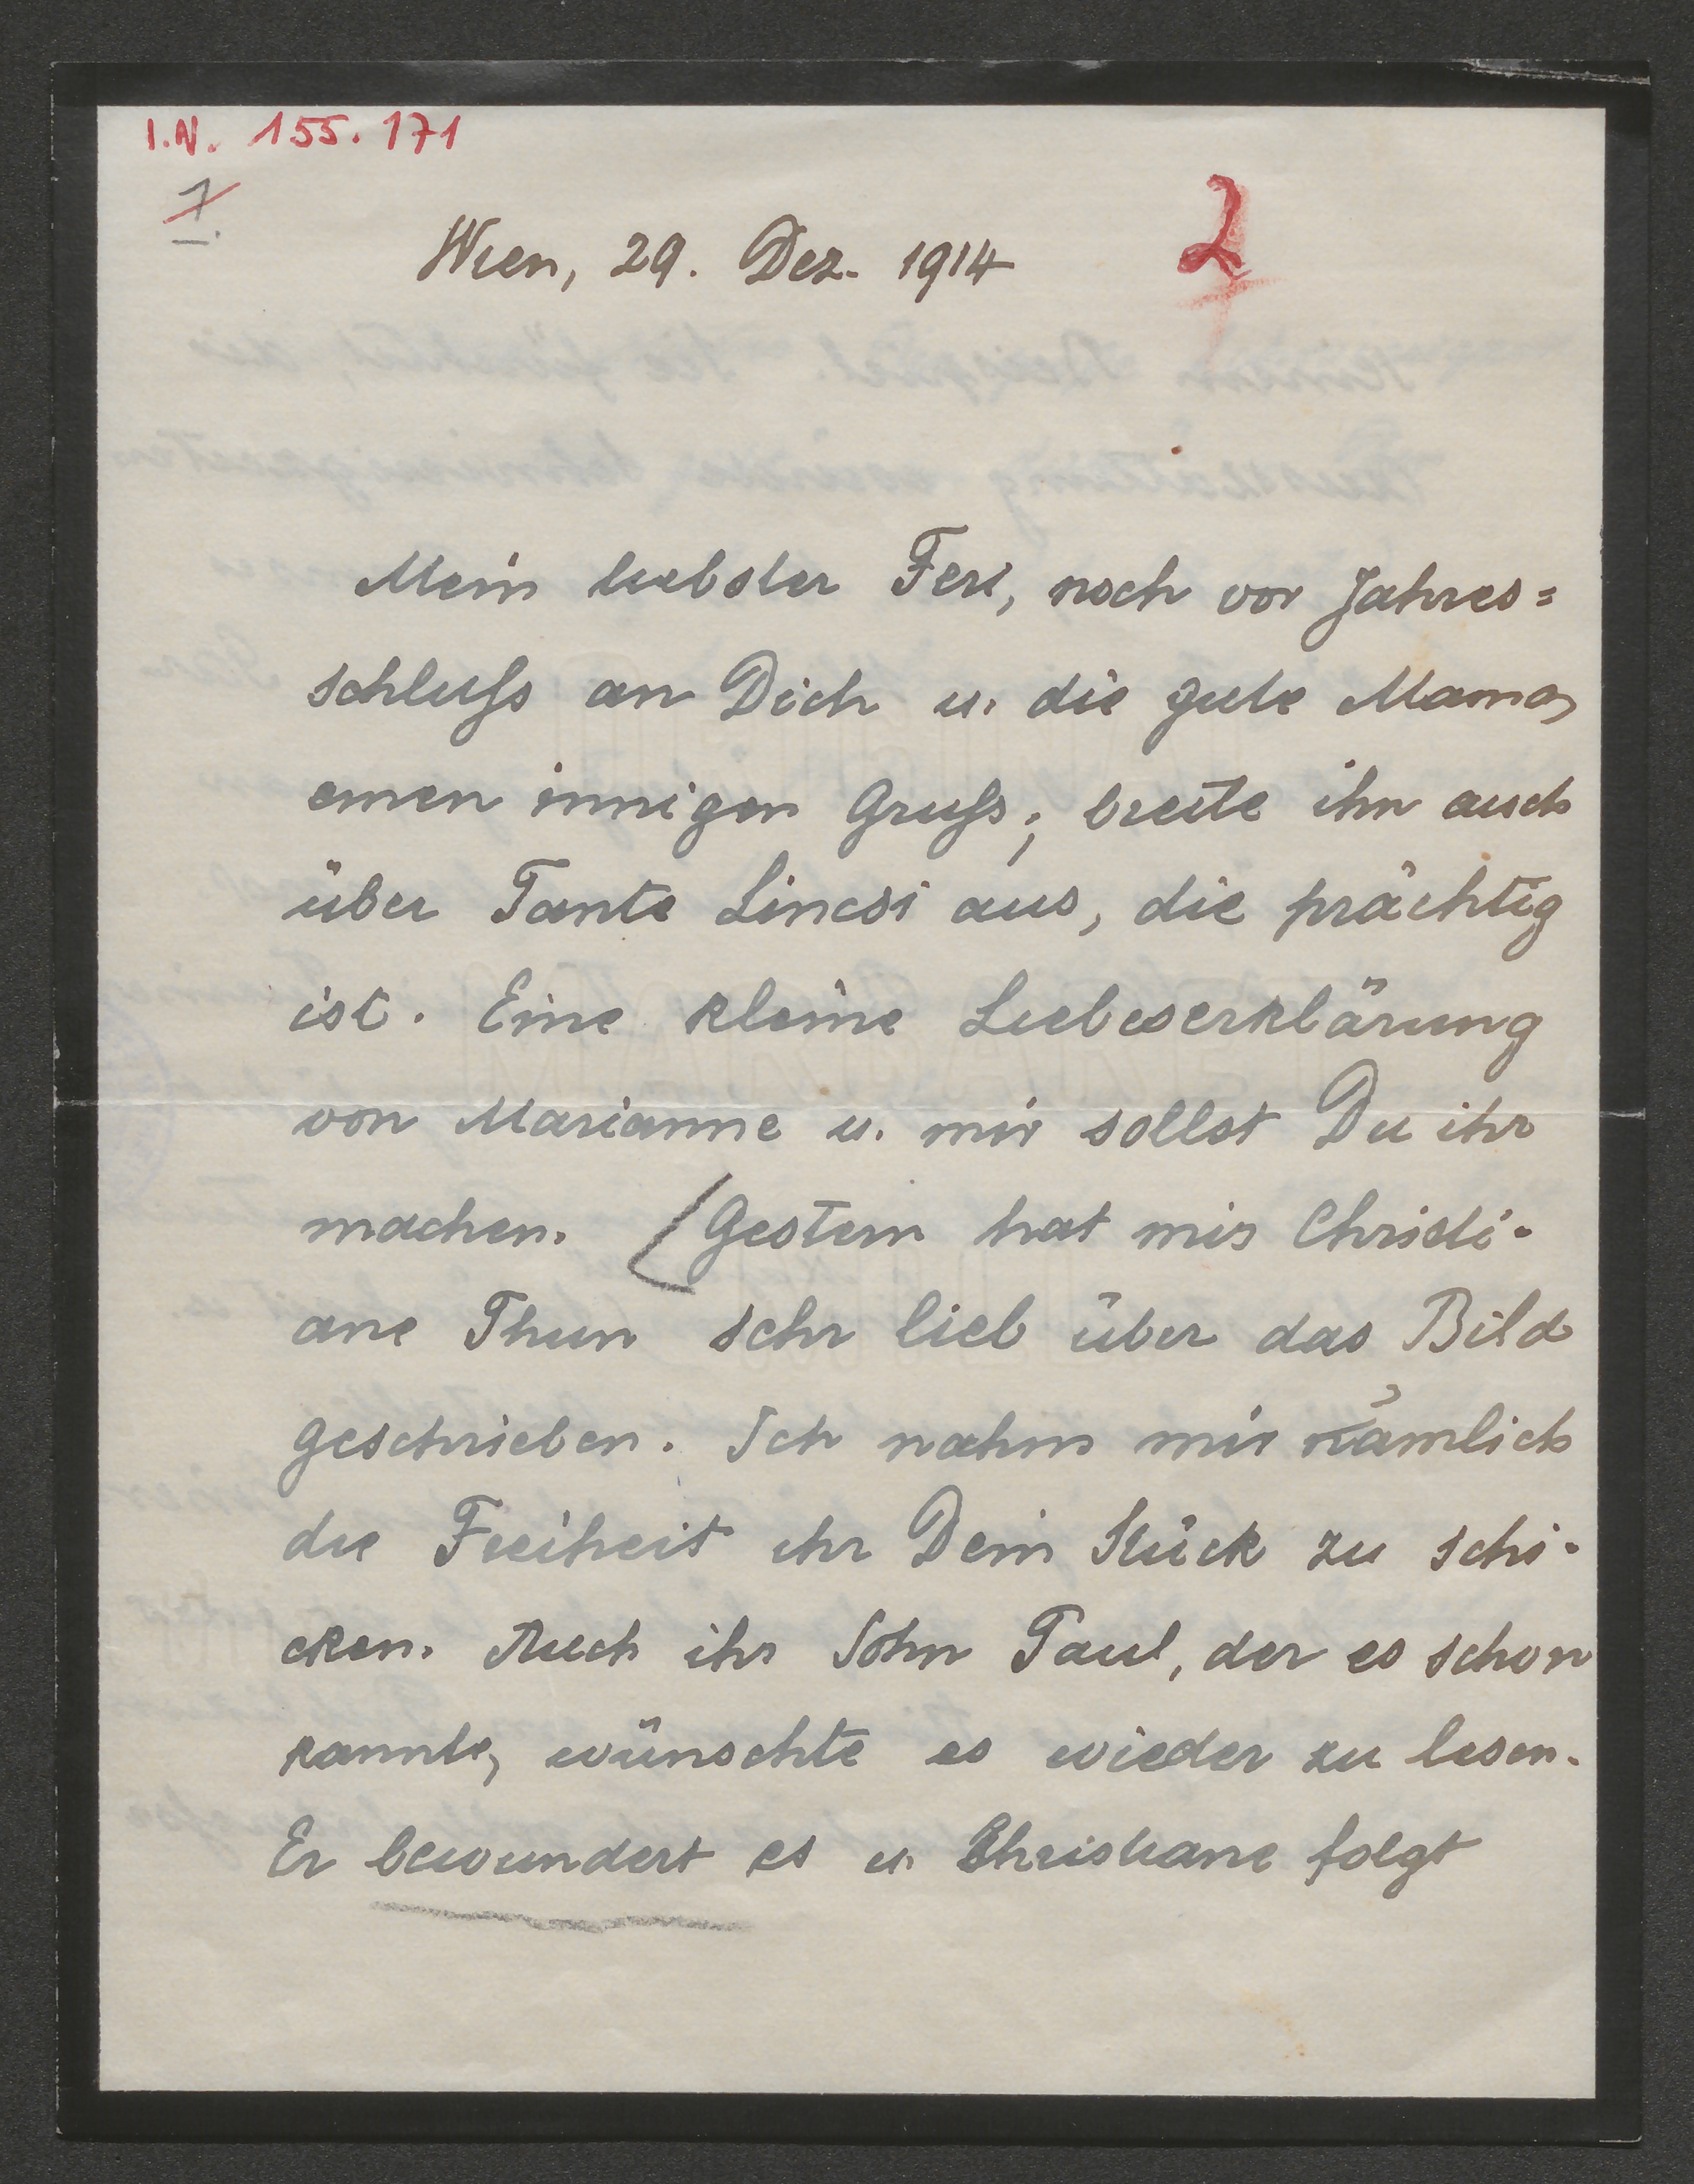 I.N. 155.171
1.
2
Wien, 29. Dez. 1914
Mein liebster Feri, noch vor Jahres=
schluß an Dich u. die gute Mama
einen innigen Gruß; breite ihn auch
über Tante Lincsi aus, die prächtig
ist. Eine kleine Liebeserklärung
von Marianne u. mir sollst Du ihr
machen. Gestern hat mir Christi-
ane Thun sehr lieb über das Bild
geschrieben. Ich nahm mir nämlich
die Freiheit ihr Dein Stück zu schi-
cken. Auch ihr Sohn Paul, der es schon
kannte, wünschte es wieder zu lesen.
Er bewundert es u. Christiane folgt